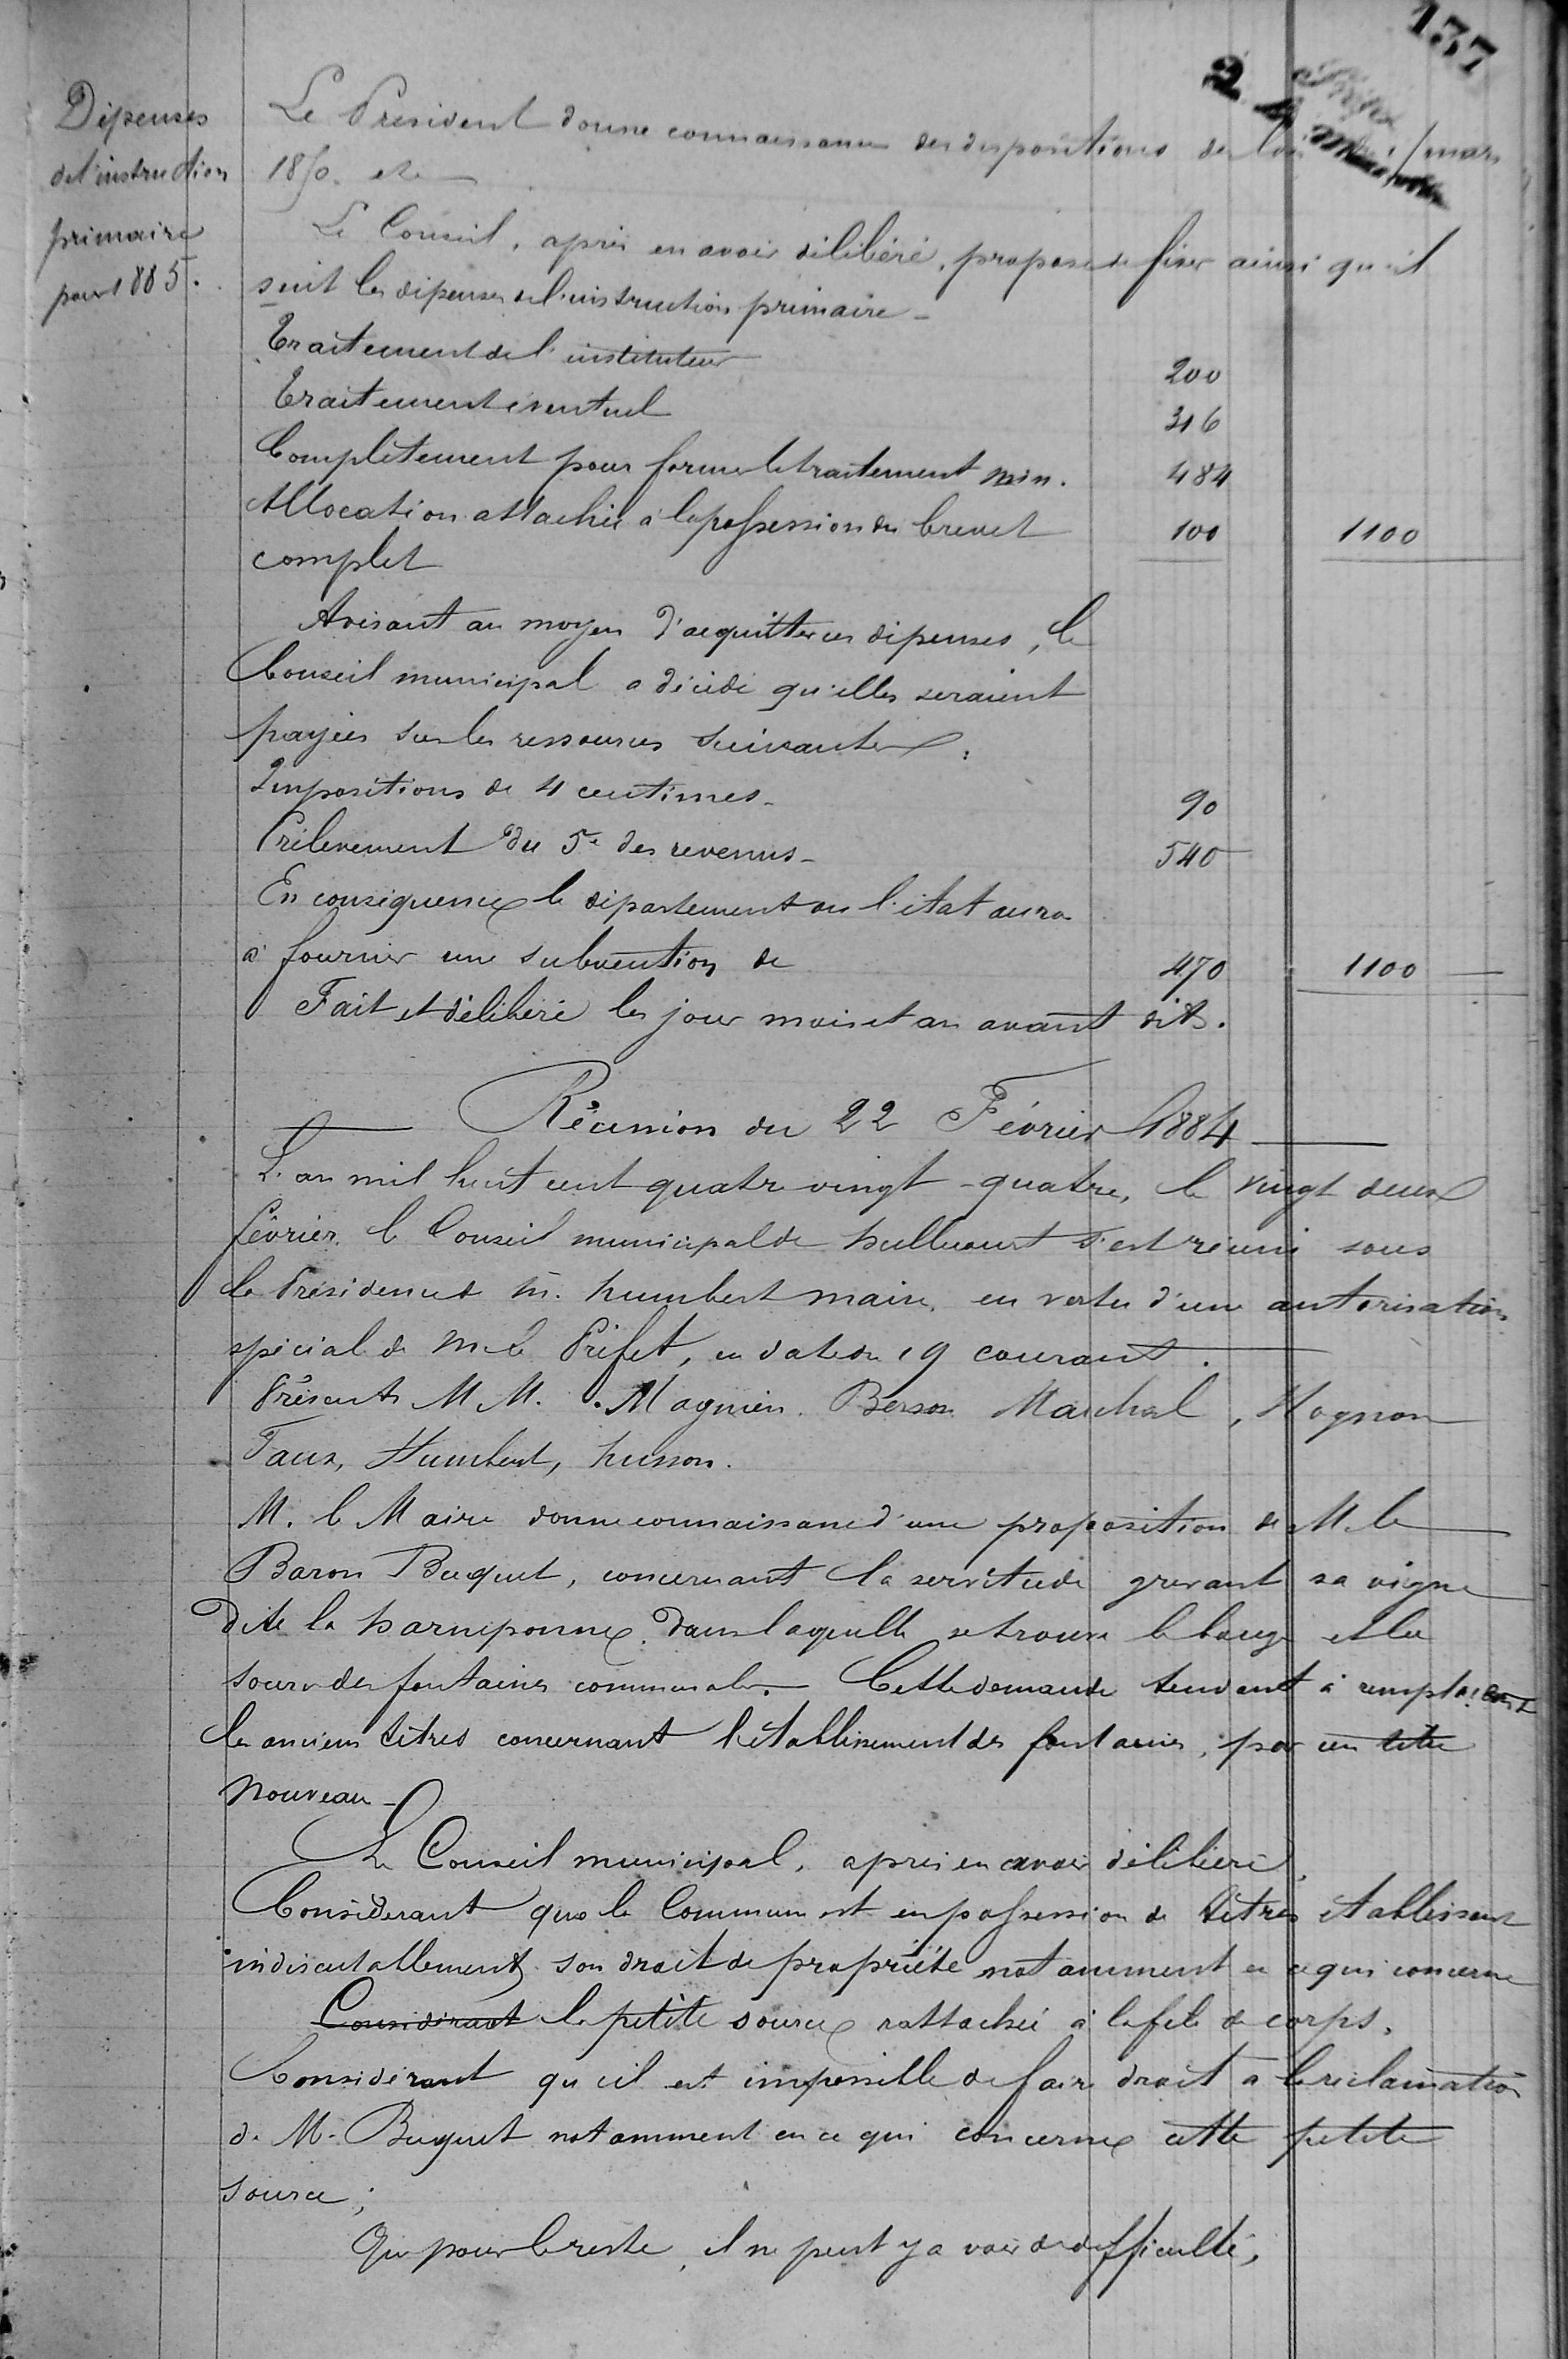 137
2
Dépenses
de l'instruction
primaire
pour 1885.
Le Président donne connaissance des dispositions de loi mars
1850. et
Le Conseil, après en avoir délibéré, propose de fixer ainsi qu'il
suit les dépenses de l'instruction primaire_
Traitement de l'instituteur 200
Traitement éventuel 316
Complètement pour former le traitement min. 484
Allocation attachée à la possession du brevet 100 1100
complet
Avisant au moyen d'acquitter ces dépenses, le
Conseil municipal a décidé qu'elles seraient
payées sur les ressources suivantes:
Impositions de 4 centimes_ 90
Prélèvement du 5e des revenus_ 540
En conséquence le département ou l'état aura
à fournir une subvention de 470 1100
Fait et délibéré les jour mois et an avant dits.
Réunion du 22 Février 1884
L'an mil huit cent quatre vingt-quatre, le vingt deux
février, le Conseil municipal de s'est réuni sous
la Présidence de M. humbert maire, en vertu d'une autorisation
spécial de M le Préfet, en date du 19 courant.
Présents MM. Magnien, Berson Marchal, Magnon
Taux, Humbert, husson.
M. le Maire donne connaissance d'une proposition de M. le
Baron Buquet, concernant la servitude grevant sa vigne
dite la dans laquelle se trouve le et la
source des fontaines communales. Cette demande tendant à remplacer
les anciens titres concernant l'établissement des fontaines, par un titre
nouveau_
Le Conseil municipal, après en avoir délibéré,
Considérant que la Commune est en possession de titres établissant
indiscutablement son droit de propriété notamment en ce qui concerne
Considérant la petite source rattachée à la file de corps,
Considérant qu'il est impossible de faire droit à la réclamation
de M. Buquet notamment en ce qui concerne cette petite
source;
Que pour le reste, il ne peut y avoir de difficulté,